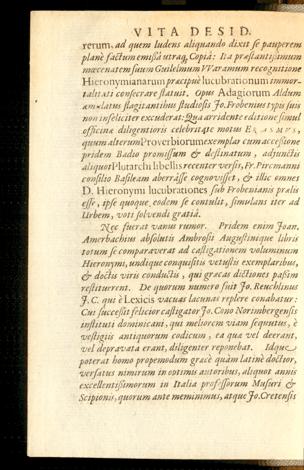 VITA DESID.
rerum, ad quem ludens aliquando dixit se pauperem
planè factum emissâ utraq; Copiâ: Ita præstantissimum
mœcenatem suum Guilelmum VVaramum recognitione
Hieronymianarum præcipuè lucubrationum immor-
talitati consecrare statuit. Opus Adagiorum Aldum
æmulatus flagitantibus studiosis Jo. Frobenius typis suis
non infeliciter excuderat: Qua arridente editione simul
officinæ diligentioris celebritate motus ERASMUS,
quum alterum Proverbiorum exemplar cum accessione
pridem Badio promissum & destinatum, adjunctis
aliquot Plutarchi libellis recenter versis, Fr. Pircmanni
consilio Basileam aberrâsse cognovisset, & illic omnes
D. Hieronymi lucubrationes sub Frobenianis prælis
esse, ipse quoque eodem se contulit, simulans iter ad
Urbem, voti solvendi gratiâ.
Nec fuerat vanus rumor. Pridem enim Joan.
Amerbachius absolutis Ambrosii Augustinique libris
totum se comparaverat ad castigationem voluminum
Hieronymi, undique conquisitis vetustis exemplaribus,
& doctis viris conductis, qui græcas dictiones passim
restituerent. De quorum numero fuit Jo. Reuchlinus
J. C. qui è Lexicis vacuas lacunas replere conabatur:
Cui successit felicior castigator Jo. Cono Norimbergensis
instituti dominicani, qui meliorem viam sequutus, è
vestigiis antiquorum codicum, ea quæ vel deerant,
vel depravata erant, diligenter reponebat. Idque
poterat homo propemodum græcè quàm latinè doctior,
versatus nimirum in optimis autoribus, aliquot annis
excellentissimorum in Italia professorum Musuri &
Scipionis, quorum ante meminimus, atque Jo. Cretensis